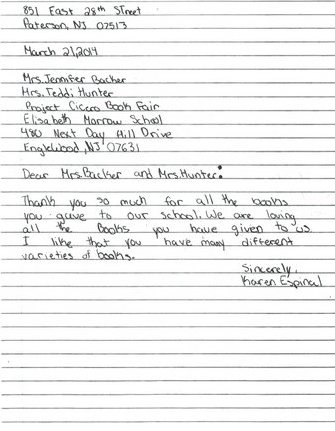 851 East 28th Street
Paterson, NJ 07513
March 21,2014
Mrs. Jennifer Backer
Mrs. Teddi Hunter
Project Cicero Book Fair
Elisabeth Morrow School
480 Next Day Hill Drive
Englewood, NJ 07631
Dear Mrs. Backer and Mrs. Hunter:
Thank you so much for all the books
you gave to our school. We are loving
all the Books you have given to us.
I like that you have many different
varieties of books.
Sincerely,
Karen Espinal